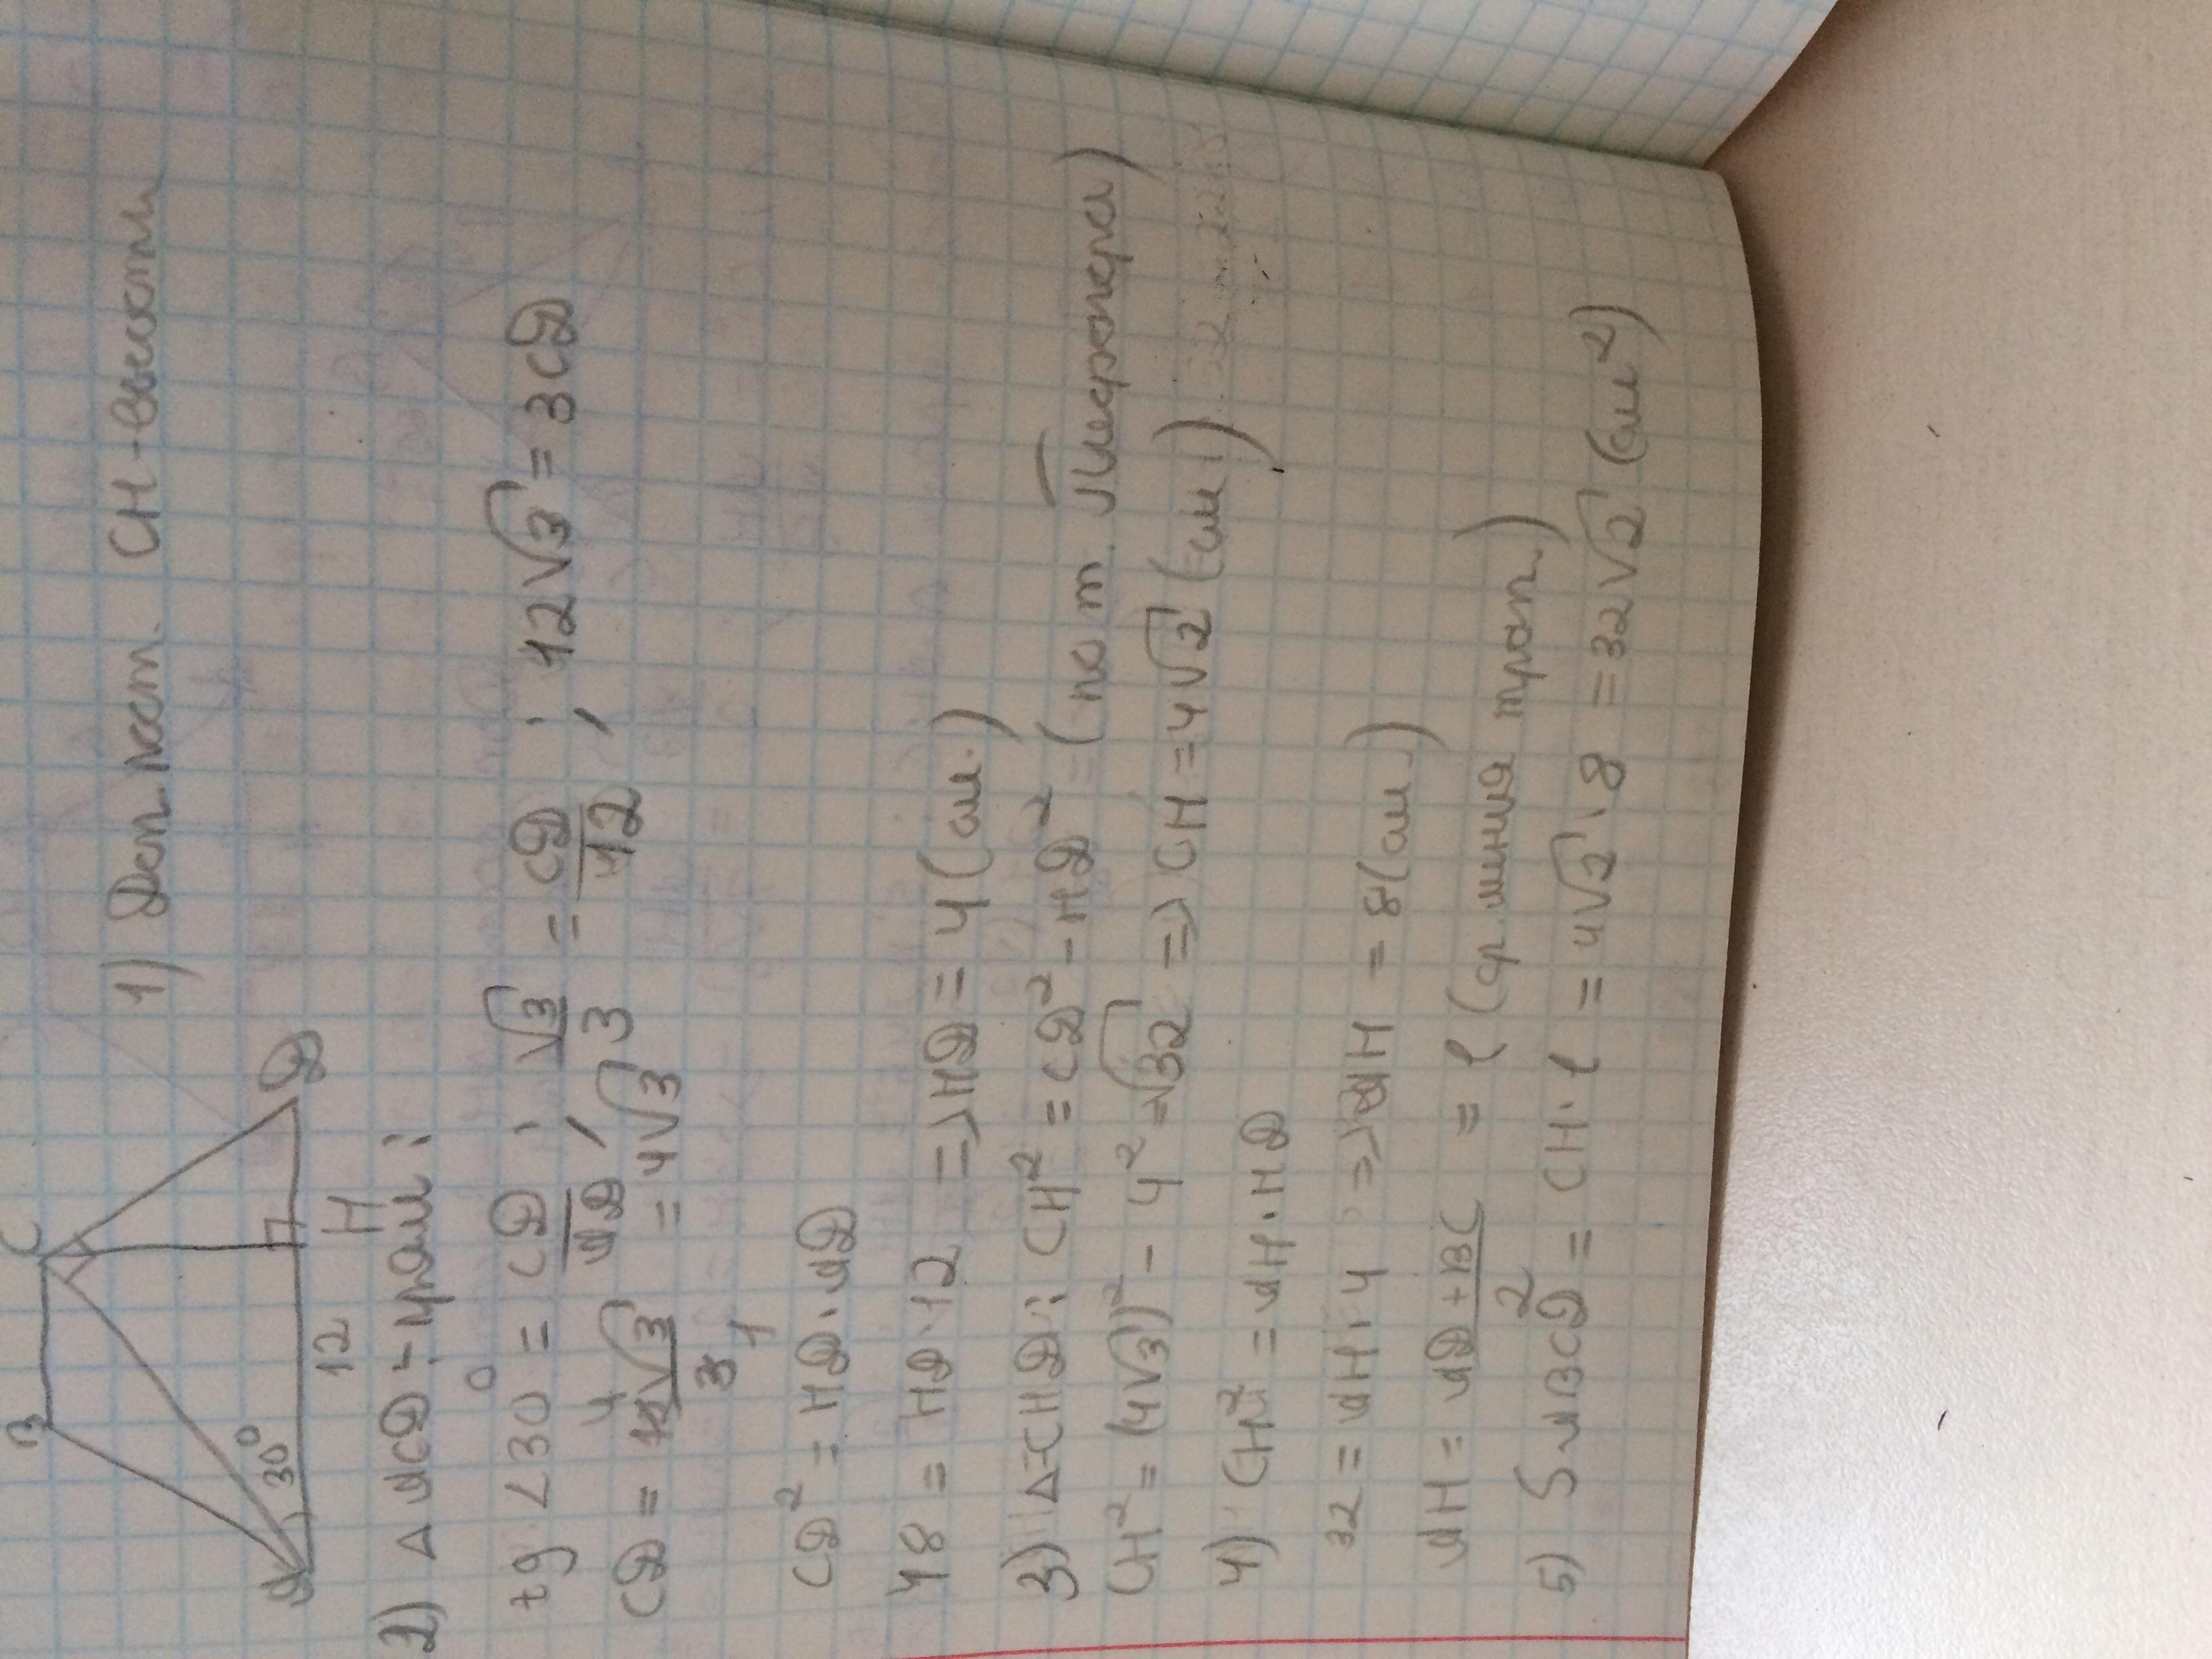 B C
30°
A 12 H D
1) Доп. пост. CH - высоты
2) Δ ACD - прям:
tg ∠30° = CD/AD ; √3/3 = CD/12 ; 12√3 = 3CD
CD = 12√3/3 = 4√3
4
1
CD² = HD · AD
48 = HD · 12 => HD = 4 (см.)
3) Δ CHD: CH² = CD² - HD² = (по т. Пифагора)
CH² = (4√3)² - 4² = √32 => CH = 4√2 (см)
4) CH² = AH · HD
32 = AH · 4 => AH = 8 (см.)
AH = AD + BC/2 = l (ср. линия трап.)
5) SABCD = CH · l = 4√2 · 8 = 32√2 (см²)